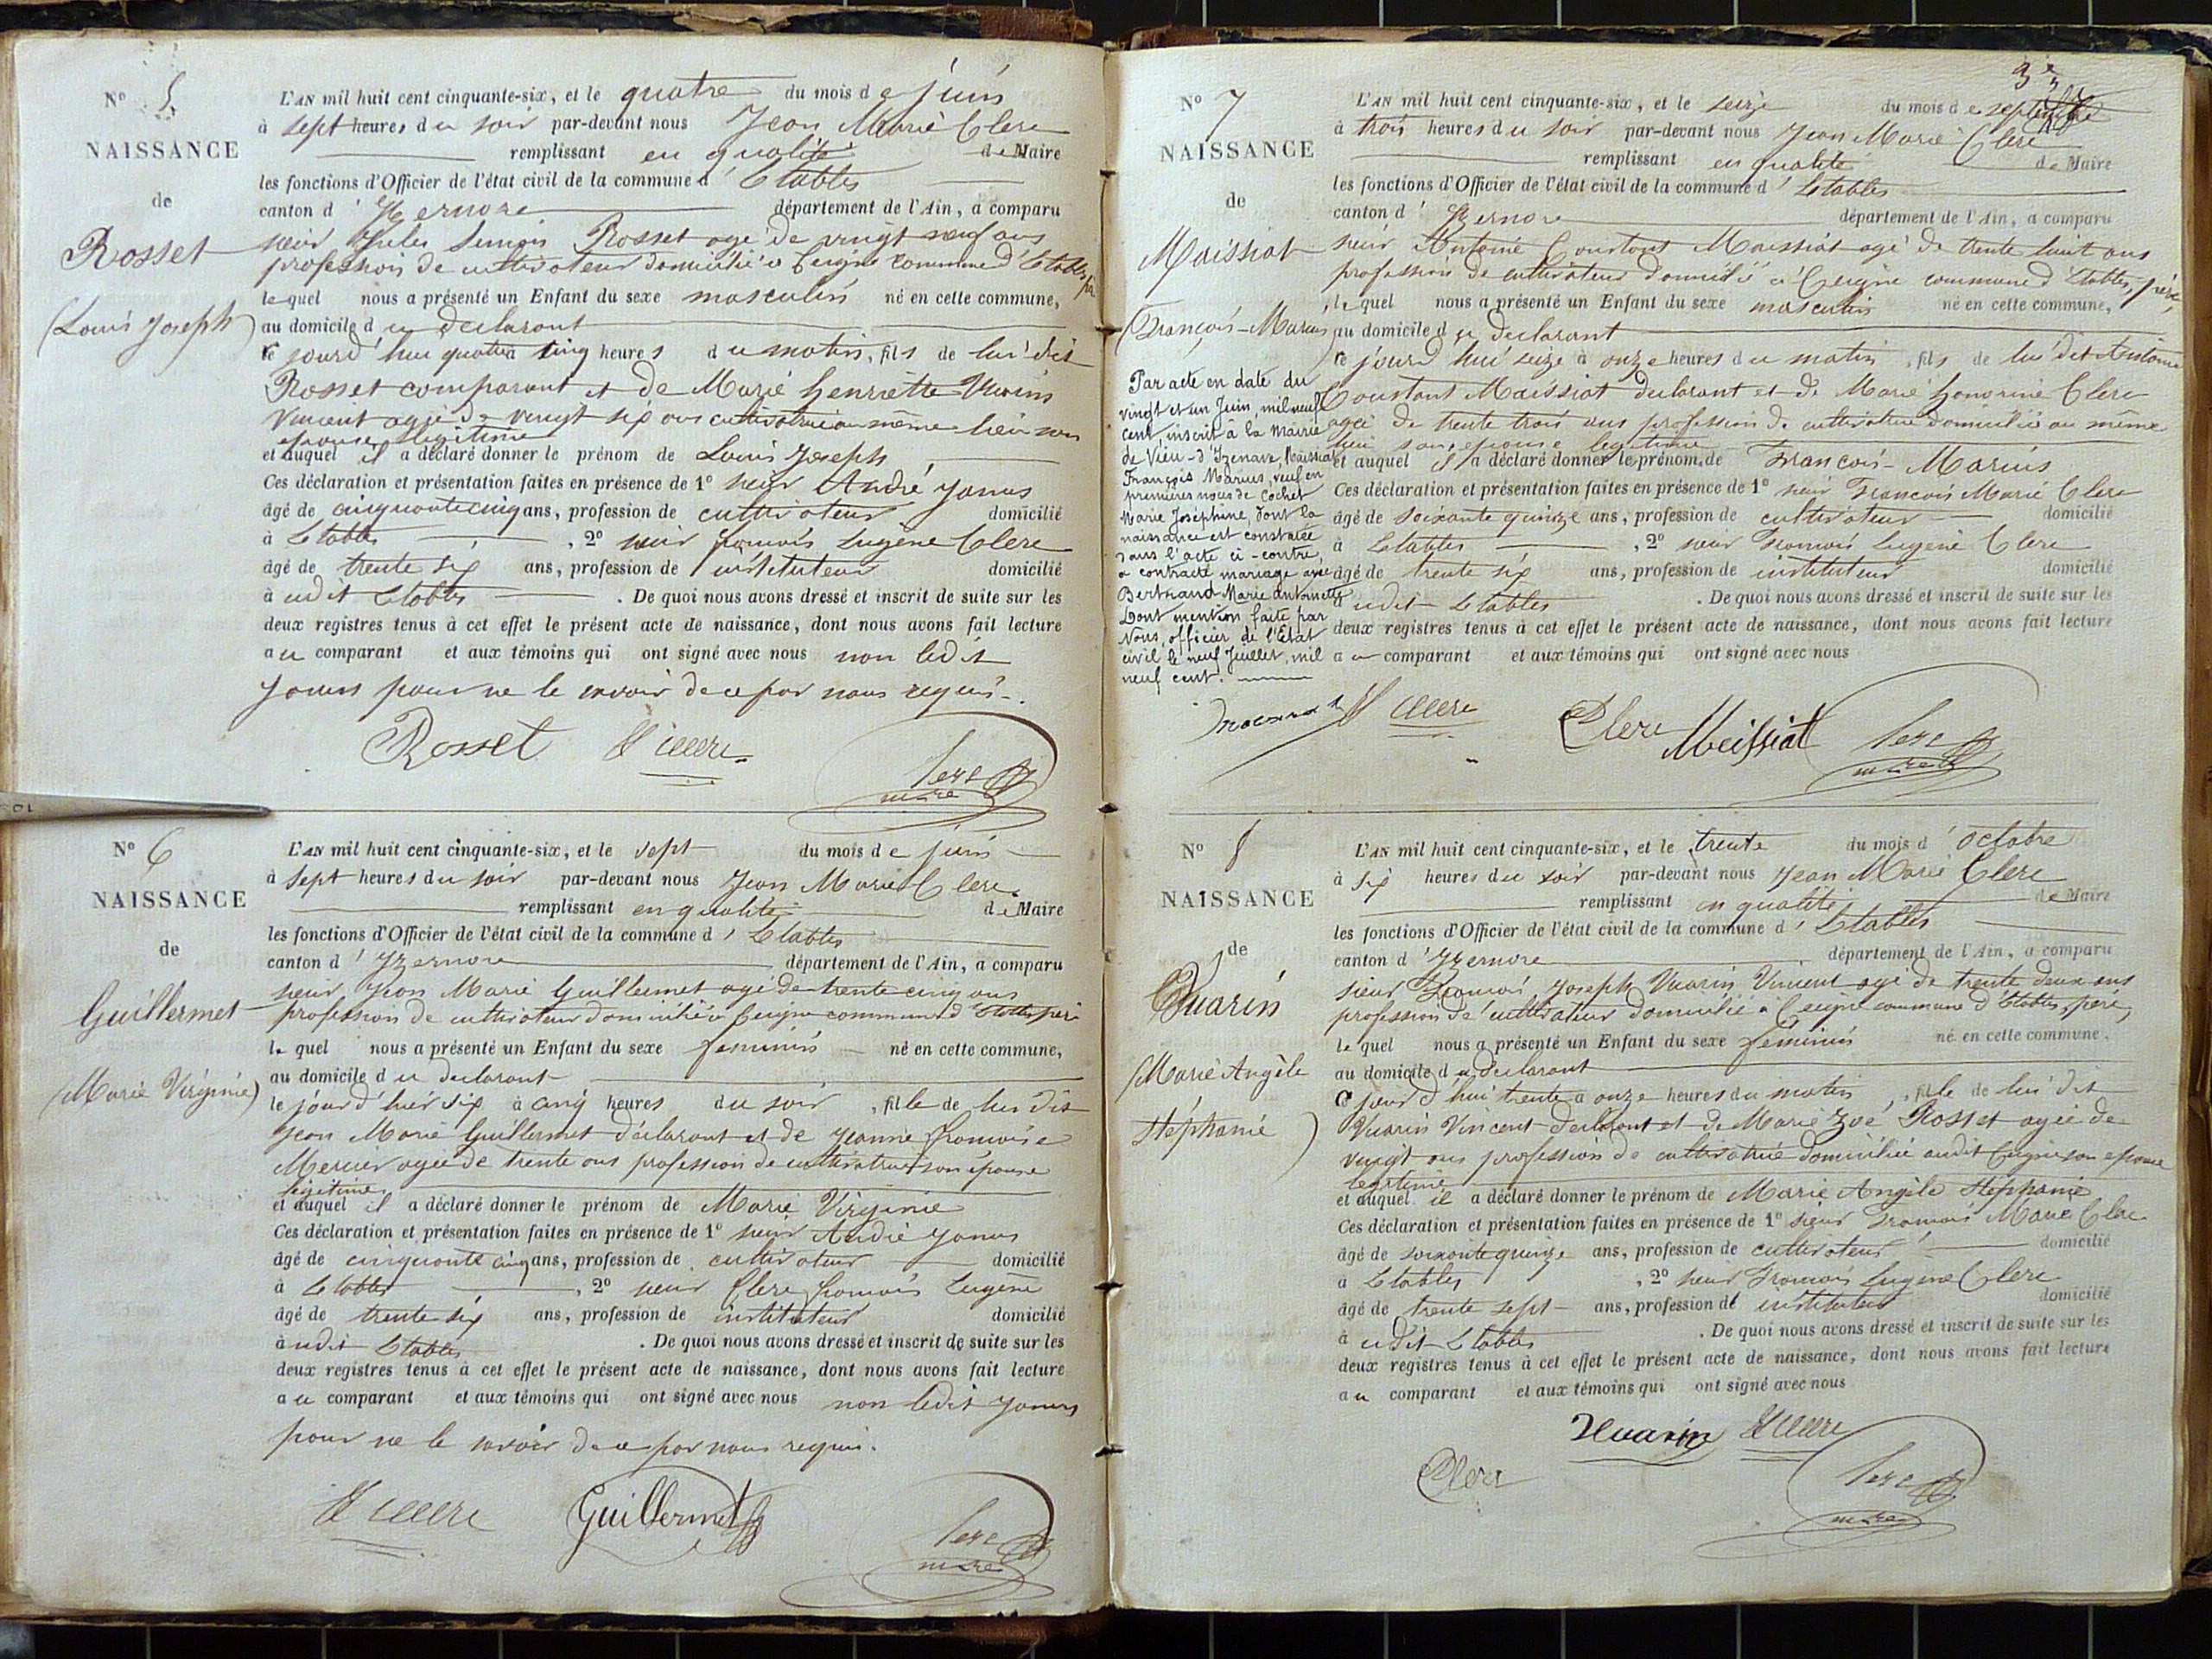 N° 5.
NAISSANCE
de
Rosset
(Louis Joseph)
L'AN mil huit cent cinquante-six, et le quatre du mois de juin
à sept heures du soir par-devant nous Jean Marie Clerc
remplissant en qualité de Maire
les fonctions d'Officier de l'état civil de la commune d' Etables
canton d' Izernore département de l'Ain, a comparu
sieur Jules Simon Rosset agé de vingt neuf ans
profession de cultivateur domicilié à Ceigne commune d'Etables, père
lequel nous a présenté un Enfant du sexe masculin né en cette commune,
au domicile du declarant
ce jourd'hui quatre à cinq heures du matin, fils de lui dit
Rosset comparant et de Marie henriette Vuarin
Vincent agée de vingt six ans cultivatrice au même lieu son
epouse legitime
et auquel il a déclaré donner le prénom de Louis Joseph
Ces déclaration et présentation faites en présence de 1° sieur André
âgé de cinquante cinq ans, profession de cultivateur domicilié
à Etables, 2° sieur françois Eugène Clerc
âgé de trente six ans, profession de instituteur domicilié
à udit Etables. De quoi nous avons dressé et inscrit de suite sur les
deux registres tenus à cet effet le présent acte de naissance, dont nous avons fait lecture
au comparant et aux témoins qui ont signé avec nous non ledit
pour ne le savoir de ce par nous requis.
Rosset
Clerc
maire
N° 6
NAISSANCE
de
Guillermet
(Marie Virginie)
L'AN mil huit cent cinquante-six, et le sept du mois de juin
à sept heures du soir par-devant nous Jean Marie Clerc
remplissant en qualité de Maire
les fonctions d'Officier de l'état civil de la commune d' Etables
canton d' Izernore département de l'Ain, a comparu
sieur Jean Marie Guillermet agé de trente cinq ans
profession de cultivateur domicilié à Ceigne commune d'Etables père
lequel nous a présenté un Enfant du sexe feminin né en cette commune,
au domicile du declarant
le jour d'hier six à cinq heures du soir, fille de lui dit
Jean Marie Guillermet déclarant et de Jeanne françoise
Mercier agée de trente ans profession de cultivatrice son épouse
legitime
et auquel il a déclaré donner le prénom de Marie Virginie
Ces déclaration et présentation faites en présence de 1° sieur André
âgé de cinquante cinq ans, profession de cultivateur domicilié
à Etables, 2° sieur Clerc françois Eugène
âgé de trente six ans, profession de instituteur domicilié
à udit Etables. De quoi nous avons dressé et inscrit de suite sur les
deux registres tenus à cet effet le présent acte de naissance, dont nous avons fait lecture
au comparant et aux témoins qui ont signé avec nous non ledit
pour ne le savoir de ce par nous requis.
Guillermet
Clerc
maire
N° 7
NAISSANCE
de
Maissiat
(François-Marius
Par acte en date du
vingt et un Juin, mil neuf
cent, inscrit à la Mairie
de Vieu-d'Izenave, Maissiat
François Marius, veuf en
premières noces de Cochet
Marie Joséphine, dont la
naissance est constatée
dans l'acte ci-contre,
a contracté mariage avec
Bertrand Marie Antoinette
Dont mention faite par
Nous, officier de l'État
civil le neuf Juillet, mil
neuf cent.
L'AN mil huit cent cinquante-six, et le seize du mois de septembre
à trois heures du soir par-devant nous Jean Marie Clerc
remplissant en qualité de Maire
les fonctions d'Officier de l'état civil de la commune d' Etables
canton d' Izernore département de l'Ain, a comparu
sieur Antoine Constant Maissiat agé de trente huit ans
profession de cultivateur domicilié à Ceigne commune d'Etables, père,
lequel nous a présenté un Enfant du sexe masculin né en cette commune,
au domicile du declarant
ce jourd'hui seize à onze heures du matin, fils de lui dit Antoine
Constant Maissiat declarant et de Marie honorine Clerc
agée de trente trois ans profession de cultivatrice domiciliée au même
lieu son epouse legitime
et auquel il a déclaré donner le prénom de François-Marius
Ces déclaration et présentation faites en présence de 1° sieur François Marie Clerc
âgé de soixante quinze ans, profession de cultivateur domicilié
à Etables, 2° sieur François Eugène Clerc
âgé de trente six ans, profession de instituteur domicilié
à udit Etables. De quoi nous avons dressé et inscrit de suite sur les
deux registres tenus à cet effet le présent acte de naissance, dont nous avons fait lecture
au comparant et aux témoins qui ont signé avec nous
Clerc Meissiat Clerc
maire
N° 8
NAISSANCE
de
Vuarin
(Marie Angèle
Stéphanie)
L'AN mil huit cent cinquante-six, et le trente du mois d'octobre
à six heures du soir par-devant nous Jean Marie Clerc
remplissant en qualité de Maire
les fonctions d'Officier de l'état civil de la commune d' Etables
canton d' Izernore département de l'Ain, a comparu
sieur François Joseph Vuarin Vincent agé de trente deux ans
profession de cultivateur domicilié à Ceigne commune d'Etables, père,
lequel nous a présenté un Enfant du sexe feminin né en cette commune.
au domicile du declarant
ce jourd'hui trente à onze heures du matin, fille de lui dit
Vuarin Vincent declarant et de Marie Zoé Rosset agée de
vingt ans profession de cultivatrice domiciliée audit Ceigne son epouse
legitime
et auquel il a déclaré donner le prénom de Marie Angèle Stephanie
Ces déclaration et présentation faites en présence de 1° sieur François Marie Clerc
âgé de soixante quinze ans, profession de cultivateur domicilié
à Etables, 2° sieur François Eugène Clerc
âgé de trente sept ans, profession de instituteur domicilié
à udit Etables. De quoi nous avons dressé et inscrit de suite sur les
deux registres tenus à cet effet le présent acte de naissance, dont nous avons fait lecture
au comparant et aux témoins qui ont signé avec nous
Vuarin
Clerc
Clerc
maire